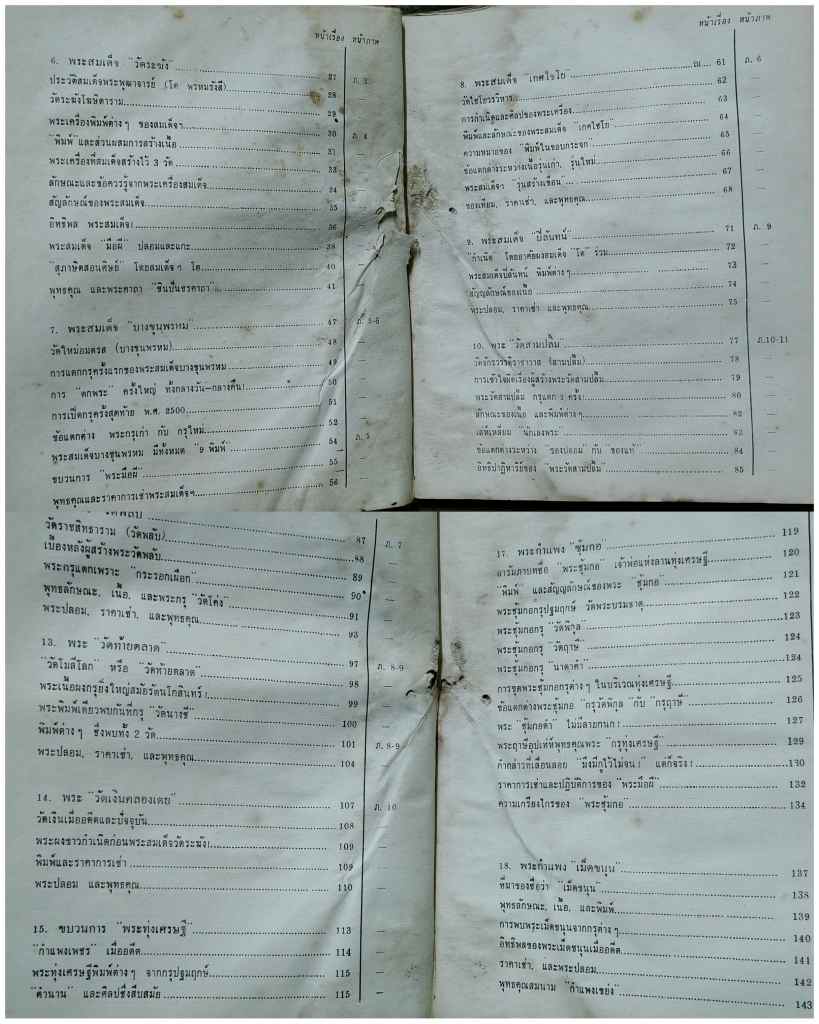 หน้าเรื่อง หน้าภาพ
6. พระสมเด็จ "วัดระฆัง" 27 ภ. 3
ประวัติสมเด็จพระพุฒาจารย์ (โต พรหมรังสี) 28 —
วัดระฆังโฆษิตาราม 29 —
พระเครื่องพิมพ์ต่างๆ ของสมเด็จฯ 30 ภ. 4
"พิมพ์" และส่วนผสมการสร้างเนื้อ 31 —
พระเครื่องที่สมเด็จสร้างไว้ 3 วัด 33 —
ลักษณะและข้อควรรู้จากพระเครื่องสมเด็จ 34 —
สัญลักษณ์ของพระสมเด็จ 35 —
อิทธิพล พระสมเด็จ! 36 —
พระสมเด็จ "มือผี" ปลอมและแกะ 38 —
"สุภาษิตสอนศิษย์" โดยสมเด็จฯ โต 40 —
พุทธคุณ และพระคาถา "ชินปัญชรคาถา" 41 —
7. พระสมเด็จ "บางขุนพรหม" 47 ภ. 5-6
วัดใหม่อมตรส (บางขุนพรหม) 48 —
การแตกกรุครั้งแรกของพระสมเด็จบางขุนพรหม 49 —
การ "ตกพระ" ครั้งใหญ่ ทั้งกลางวัน-กลางคืน! 50 —
การเปิดกรุครั้งสุดท้าย พ.ศ. 2500 51 —
ข้อแตกต่าง พระกรุเก่า กับ กรุใหม่ 52 —
พระสมเด็จบางขุนพรหม มีทั้งหมด "9 พิมพ์" 54 ภ. 5
ขบวนการ "พระมือผี" 55 —
พุทธคุณและราคาการเช่าพระสมเด็จฯ 56 —
หน้าเรื่อง หน้าภาพ
8. พระสมเด็จ "เกศไชโย" ณ 61 ภ. 6
วัดไชโยวรวิหาร 62 —
การกำเนิดและศิลปของพระเครื่อง 63 —
พิมพ์และลักษณะของพระสมเด็จ "เกศไชโย" 64 —
ความหมายของ "พิมพ์ในขอบกระจก" 65 —
ข้อแตกต่างระหว่างเนื้อรุ่นเก่า, รุ่นใหม่ 66 —
พระสมเด็จฯ "รุ่นสร้างเขื่อน" 67 —
ของเทียม, ราคาเช่า, และพุทธคุณ 68 —
9. พระสมเด็จ "ปิลันทน์" 71 ภ. 9
"กำเนิด โดยอาศัยผงสมเด็จ "โต" ร่วม 72 —
พระสมเด็จปิลันทน์ พิมพ์ต่างๆ 73 —
สัญลักษณ์ของเนื้อ 74 —
พระปลอม, ราคาเช่า และพุทธคุณ 75 —
10. พระ "วัดสามปลื้ม" 77 ภ.10-11
วัดจักรวรรดิราชาวาส (สามปลื้ม) 78 —
การเข้าใจผิดเรื่องผู้สร้างพระวัดสามปลื้ม 79 —
พระวัดสามปลื้ม กรุแตก 3 ครั้ง! 80 —
ลักษณะของเนื้อ และพิมพ์ต่างๆ 82 —
เล่ห์เหลี่ยม "นักเลงพระ" 83 —
ข้อแตกต่างระหว่าง "ของปลอม" กับ "ของแท้" 84 —
อิทธิปาฏิหาริย์ของ "พระวัดสามปลื้ม" 85 —
วัดราชสิทธาราม (วัดพลับ) 87 ภ. 7
เบื้องหลังผู้สร้างพระวัดพลับ 88 —
พระกรุแตกเพราะ "กระรอกเผือก" 89 —
พุทธลักษณะ, เนื้อ, และพระกรุ "วัดโค่ง" 90 —
พระปลอม, ราคาเช่า, และพุทธคุณ 91 —
93 —
13. พระ "วัดท้ายตลาด" 97 ภ. 8-9
"วัดโมลีโลก" หรือ "วัดท้ายตลาด" 98 —
พระเนื้อผงกรุยิ่งใหญ่สมัยรัตนโกสินทร์! 99 —
พระพิมพ์เดียวพบกันที่กรุ "วัดนางชี" 100 —
พิมพ์ต่างๆ ซึ่งพบทั้ง 2 วัด 101 ภ. 8-9
พระปลอม, ราคาเช่า, และพุทธคุณ 104 —
14. พระ "วัดเงินคลองเตย" 107 ภ. 10
วัดเงินเมื่ออดีตและปัจจุบัน 108 —
พระผงขาวกำเนิดก่อนพระสมเด็จวัดระฆัง! 109 —
พิมพ์และราคาการเช่า 109 —
พระปลอม และพุทธคุณ 110 —
15. ขบวนการ "พระทุ่งเศรษฐี" 113 —
"กำแพงเพชร" เมื่ออดีต 114 —
พระทุ่งเศรษฐีพิมพ์ต่างๆ จากกรุปฐมฤกษ์ 115 —
"ตำนาน" และศิลปซึ่งสืบสมัย 115 —
17. พระกำแพง "ซุ้มกอ" 119
อารัมภาบทชื่อ "พระซุ้มกอ" เจ้าพ่อแห่งลานทุ่งเศรษฐี 120
"พิมพ์" และสัญญลักษณ์ของพระ "ซุ้มกอ" 121
พระซุ้มกอกรุปฐมฤกษ์ วัดพระบรมธาตุ 122
พระซุ้มกอกรุ "วัดพิกุล" 123
พระซุ้มกอกรุ "วัดฤาษี" 124
พระซุ้มกอกรุ "นาตาคำ" 124
การขุดพระซุ้มกอกรุต่างๆ ในบริเวณทุ่งเศรษฐี 125
ข้อแตกต่างพระซุ้มกอ "กรุวัดพิกุล" กับ "กรุฤาษี" 126
พระ "ซุ้มกอดำ" ไม่มีลายกนก! 127
พระฤาษีอุปเท่ห์พุทธคุณพระ "กรุทุ่งเศรษฐี" 129
คำกล่าวที่เลื่อนลอย "มึงมีกูไว้ไม่จน!" แต่ก็จริง! 130
ราคาการเช่าและปฏิบัติการของ "พระมือผี" 132
ความเกรียงไกรของ "พระซุ้มกอ" 134
18. พระกำแพง "เม็ดขนุน" 137
ที่มาของชื่อว่า "เม็ดขนุน" 138
พุทธลักษณะ, เนื้อ, และพิมพ์ 139
การพบพระเม็ดขนุนจากกรุต่างๆ 140
อิทธิพลของพระเม็ดขนุนเมื่ออดีต 141
ราคาเช่า, และพระปลอม 142
พุทธคุณสมนาม "กำแพงเขย่ง" 143